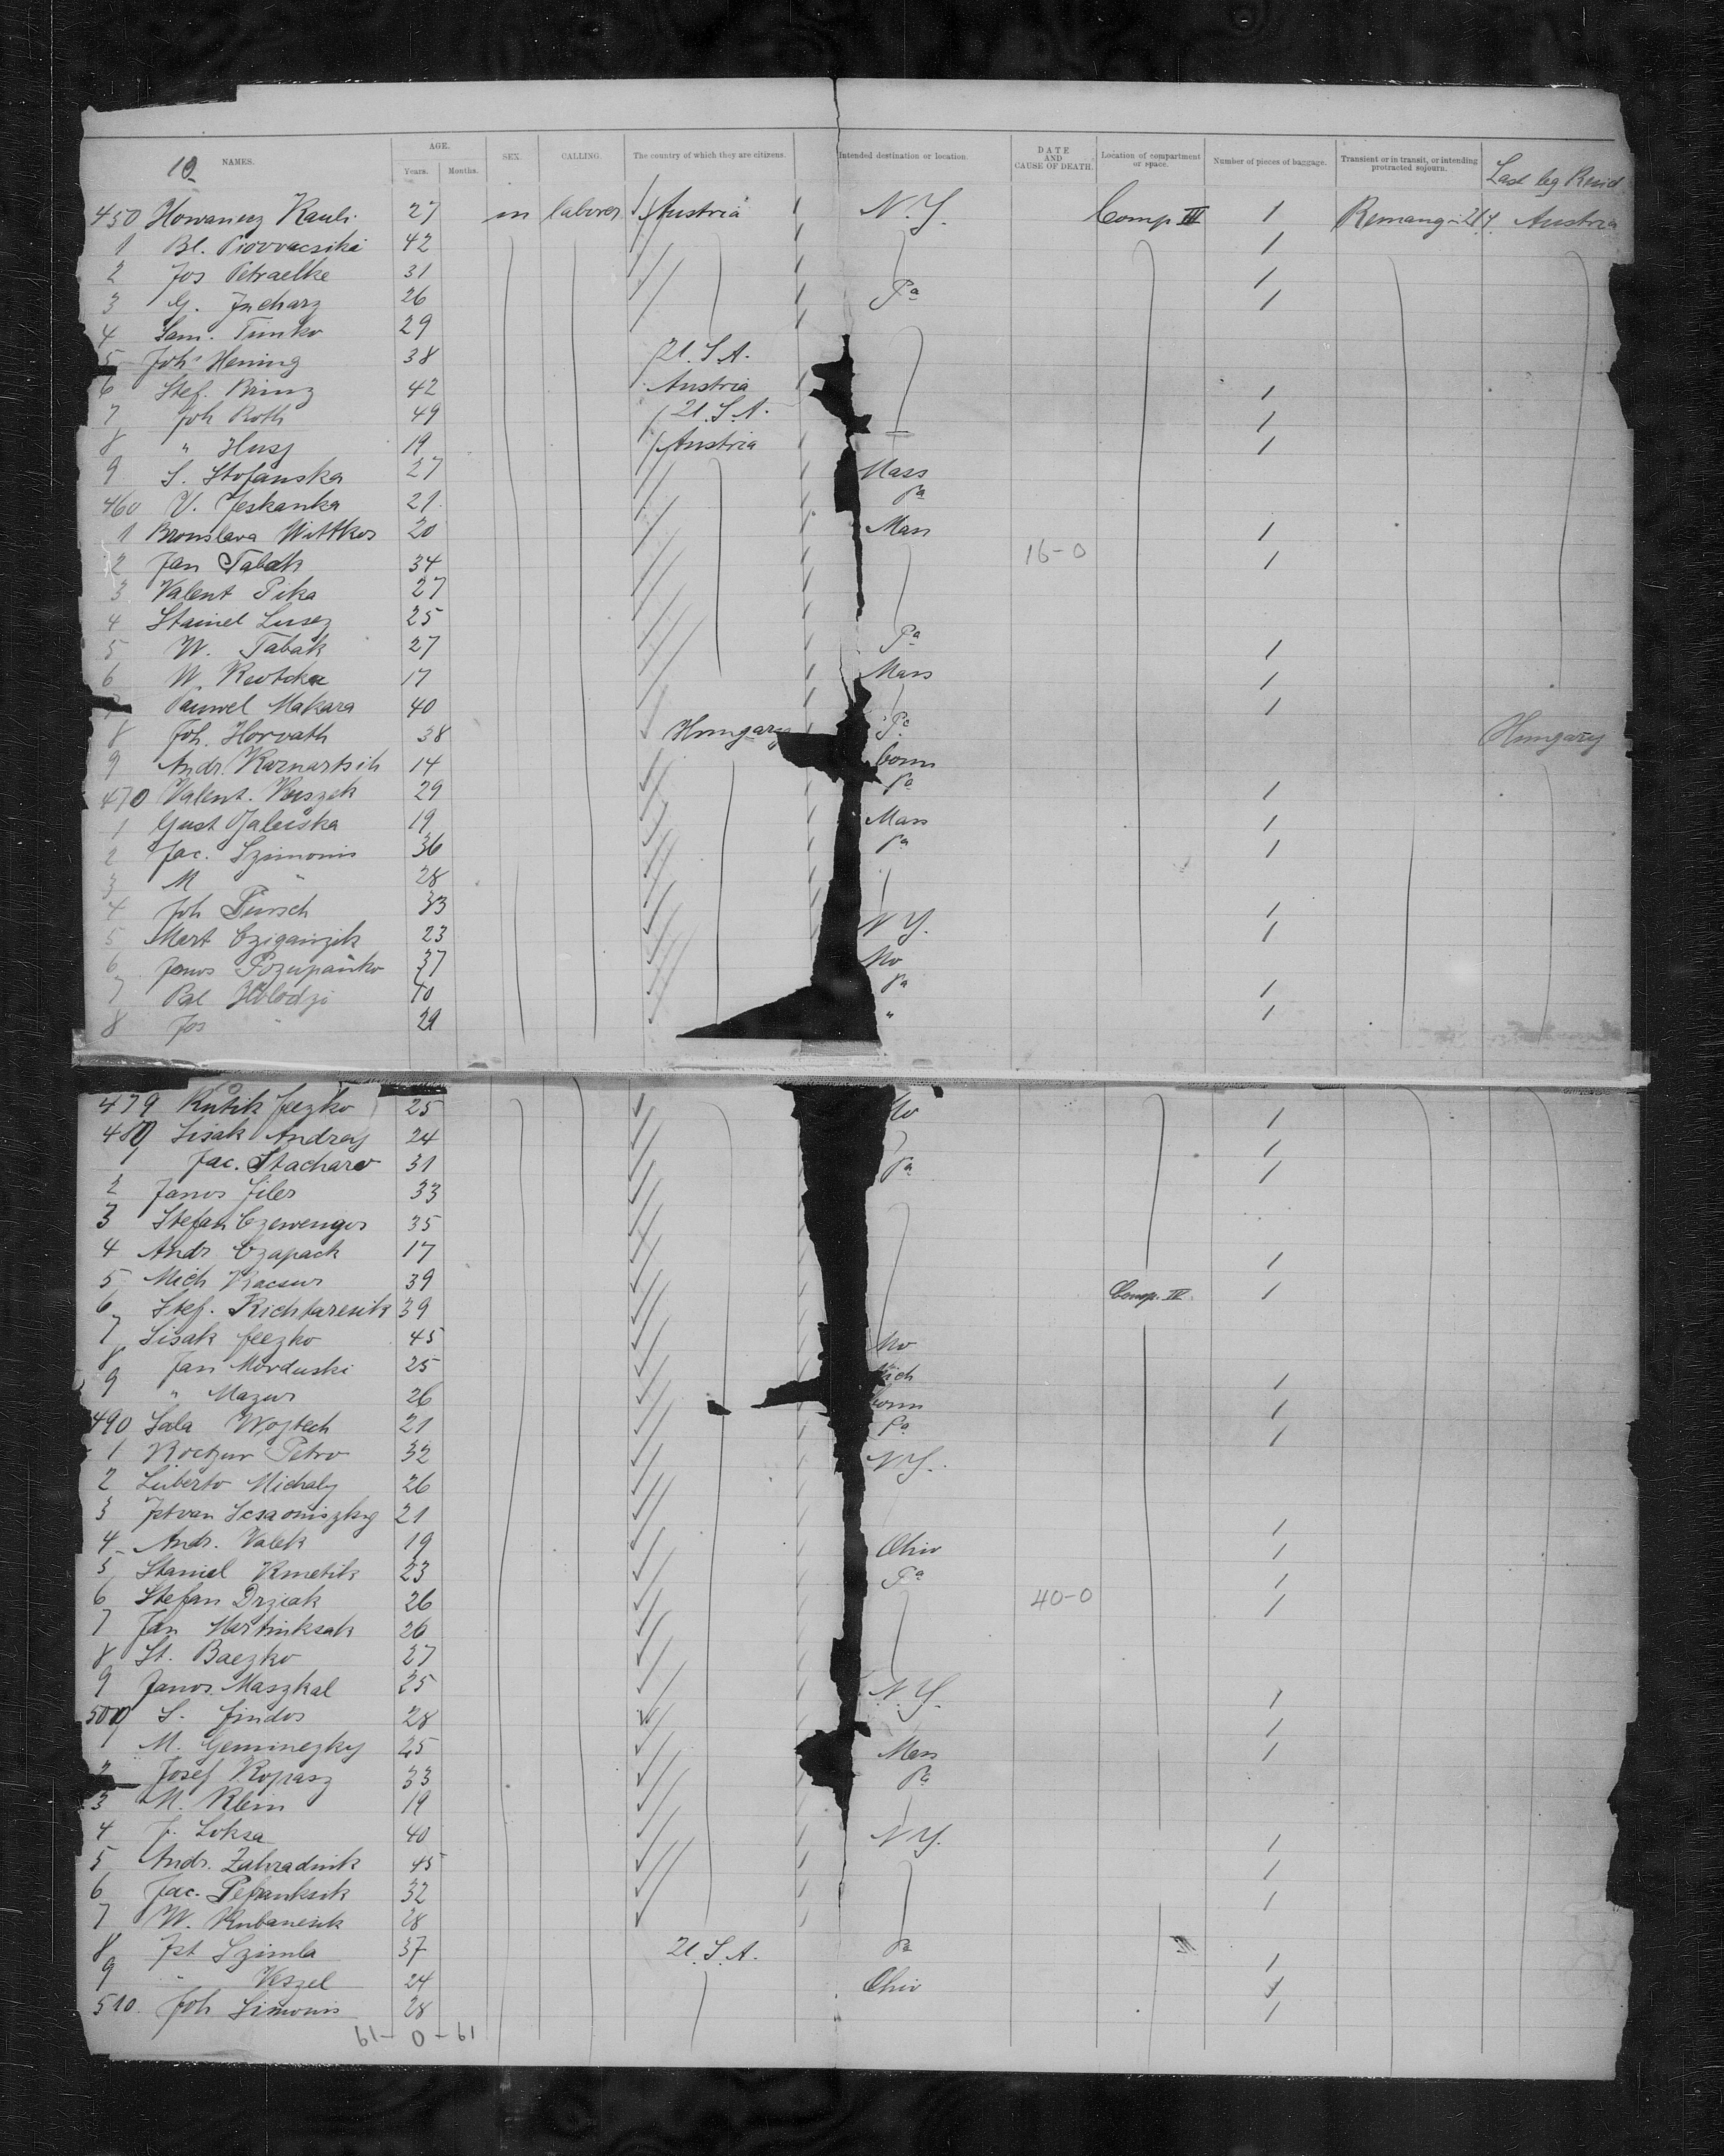 10
NAMES. AGE. Years. Months. SEX. CALLING. The country of which they are citizens. Intended destination or location. DATE AND CAUSE OF DEATH. Location of compartment or space. Number of pieces of baggage. Transient or in transit, or intending protracted sojourn. Last leg Resid
450 Howanerz Kauli 27 m laborer Austria N.Y. Comp III 1 Austria
1 Bl. 42 1
2 Jos Petraelke 31 1
3 G. 26 Pa 1
4 Sam. Timko 29
5 Joh Hening 38 U.S.A.
6 Stef. Prinz 42 Austria 1
7 Joh Roth 49 U.S.A. 1
8 " Husz 19 Austria 1
9 S. Stofanska 27 Mass
460 V. Jeskanka 21 Pa
1 Bronslava Wittkos 20 Mass 1
2 Jan Tabak 34 16-0 1
3 Valent Pika 27
4 Stainel Lusez 25
5 W. Tabak 27 Pa 1
6 W. 17 Mass 1
Pauwel Makara 40 1
8 Joh. Horvath 38 Hungary Pa Hungary
9 Andr. Karnartsih 14 Conn
470 Valent. Kuszek 29 Pa 1
1 Gust Jaleiska 19 Mass 1
2 Jac. Szimonis 36 Pa 1
3 M " 28
4 Joh Pursch 33 1
5 Mart Cziganzik 23 N.Y. 1
6 Janos Pozupanko 37 Mo
7 Pal Holodzi 40 Pa 1
8 Jos " 29 " 1
479 Kutik Jeezko 25 Mo 1
480 Lisak Andrey 24 1
1 Jac. Stacharo 31 Pa 1
2 Janos Jiles 33
3 Stefan Czewenges 35
4 Andr Czapack 17 1
5 Mich Kacsur 39 Comp. IV 1
6 Stef. Richtaresik 39
7 Lisak Jeezko 45 Mo
8 Jan Morduski 25 Mich 1
9 " Mazur 26 Conn 1
490 Sala Wojtech 21 Pa 1
1 Koczur Petro 32 N.Y.
2 Luberto Michaly 26
3 Istvan 21 1
4 Andr. Valek 19 Ohio 1
5 Staniel Kmetik 23 Pa 1
6 Stefan Drziak 26 40-0 1
7 Jan Martinksak 26
8 St. Baezko 27
9 Janos Maszkal 25 N.Y. 1
500 S. Jindos 28 1
1 M. Geminezky 25 Mass 1
2 Josef Kopasz 33 Pa
3 M. Klein 19
4 J. Loksa 40 N.Y. 1
5 Andr. Zahradnik 45 1
6 Jac. Petranksik 32 1
7 W. Kubanesik 28
8 Ist Szimla 37 U.S.A. Pa III 1
9 " Veszel 24 Ohio 1
510 Joh Simonis 28 1
61-0-61